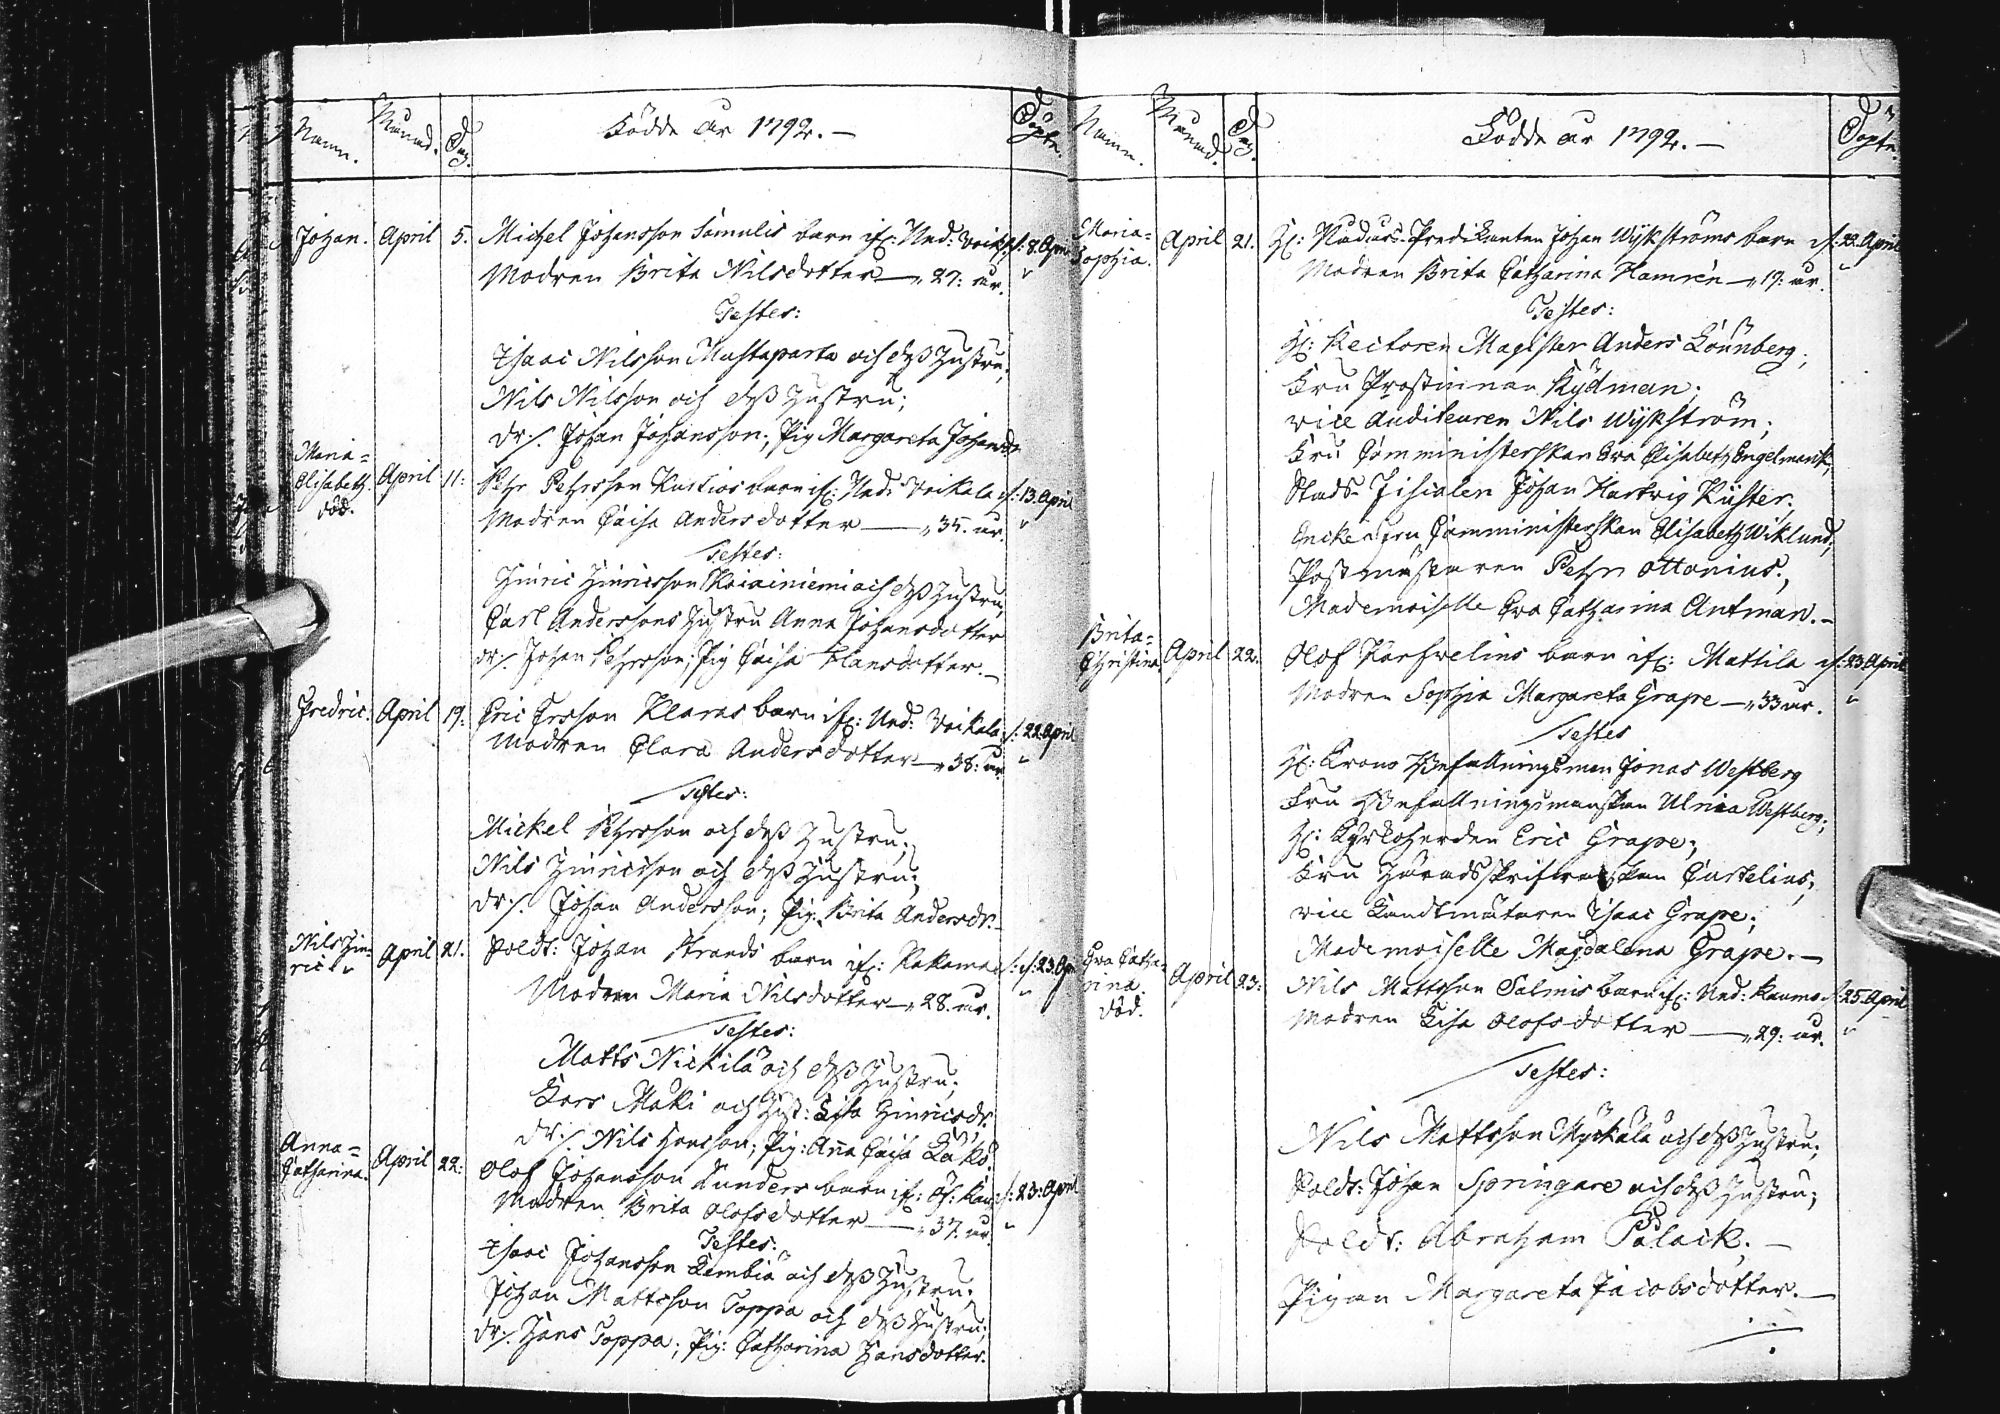 Namn. Månad. Dag. Födde år 1792. — Döpte.
Johan. April 5. Michel Johansson Samulis barn if: Ned: Voik. d: 8. Apri
Modren Brita Nilsdotter — 27: år.
Testes:
Isaac Nilsson Mustaparta och dess hustru;
Nils Nilsson och dess hustru;
Dr: Johan Johansson; Pig Margareta Johansdr
Maria=
Elisabeth. April 11: Pehr Pehrsson Kurkios barn if: Ned: Voikala d: 13. April
död.
Modren Caisa Andersdotter — 35. år.
Testes:
Hinric Hinricsson Koiainiemi och dess hustru,
Carl Anderssons hustru Anna Johansdotter
Dr: Johan Pehrsson; Pig Caisa Hansdotter. —
Fredric. April 19. Eric Ersson Klaras barn if: Ned: Voikala d: 22. April
Modren Clara Andersdotter — 38: år
Testes:
Mickel Pehrsson och dess hustru;
Nils Hinricsson och dess hustru;
Dr: Johan Andersson; Pig: Brita Andersdr. —
Nils Hin=
ric April 21. Soldt: Johan Strands barn if: Kakama d: 23. Apr
Modren Maria Nilsdotter — 28. år.
Testes:
Matts Nickilä och dess hustru;
Lars Maki och hust: Lisa Hinricsdr.
Dr: Nils Hansson; Pig: Anna Caisa Lakso.
Anna=
Catharina. April 22: Olof Johansson Kunders barn if: Öf: Kau d: 23: April
Modren Brita Olofsdotter — 37. år.
Testes:
Isaac Johansson Lembiä och dess hustru;
Johan Mattsson Toppa och dess hustru;
Dr: Hans Toppa; Pig: Catharina Hansdotter.
Namn. Månad. Dag. Födde år 1792. — Döpte.
Maria=
Sophia. April 21. H: Nådårs-Predikanten Johan Wijkströms barn d: 22. April
Modren Brita Catharina Hamrén — 19: år.
Testes:
H: Rectoren Magister Anders Lönnberg;
Fru Prostinnan Rydman;
vice Auditeuren Nils Wijkström;
Fru Comministerskan Eva Elisabeth Engelmark;
Stads-Fiscalen Johan Hartvig Küster;
Enkefru Comministerskan Elisabeth Wiklund;
Postmästaren Pehr Ottonius;
Mademoiselle Eva Catharina Antman. —
Brita=
Christina April 22. Olof Karfvelins barn if: Mattila d: 23. April
Modren Sophia Margareta Grape — 33 år.
Testes
H: Krono Befallningsman Jonas Westberg
Fru Befallningsmanskan Ulrica Westberg;
H: Kyrkoherden Eric Grape;
Fru Häradsskrifvarskan Curtelius;
vice Landtmätaren Isaac Grape;
Mademoiselle Magdalena Grape. —
Eva Catha=
rina. April 23: Nils Mattsson Salmis barn if: Ned: Kaumo d: 25. April
död.
Modren Lisa Olofsdotter — 29: år.
Testes:
Nils Mattsson Myckälä och dess hustru;
Soldt: Johan Springare och dess hustru;
Soldt: Abraham Palack; —
Pigan Margareta Jacobsdotter. —